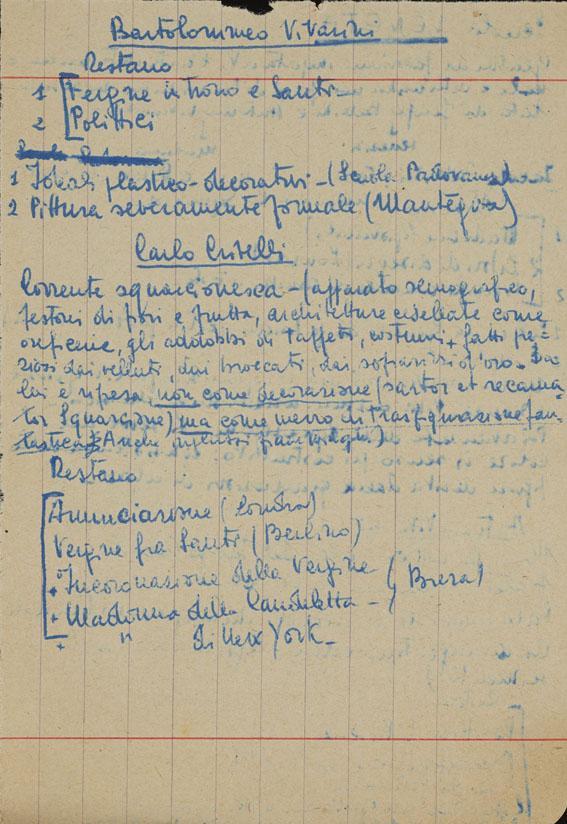 Bartolommeo Vivarini
Restano
1 [Vergine in trono e Santi -
2 [Polittici
1 Ideali plastico-decorativi - (Scuola Padovana)
2 Pittura severamente formale (Mantegna)
Carlo Crivelli
Corrente squarcionesca - (apparato scenografico,
festoni di fiori e frutta, architetture cisellate come
oreficerie, gli addobbi di taffetì, costumi, fatti pre=
ziosi dai velluti, dai broccati, dai soprarizzi d'oro. Da
lui è ripresa, non come decorazione (sartor et recama
tor Squarcione) ma come mezzo di trasfigurazione fan-
tastica Anche
Restano
Annunciazione (Londra)
Vergine fra Santi (Berlino)
+ Incoronazione della Vergine (Brera)
+ Madonna della Candeletta -
+ " di New York -